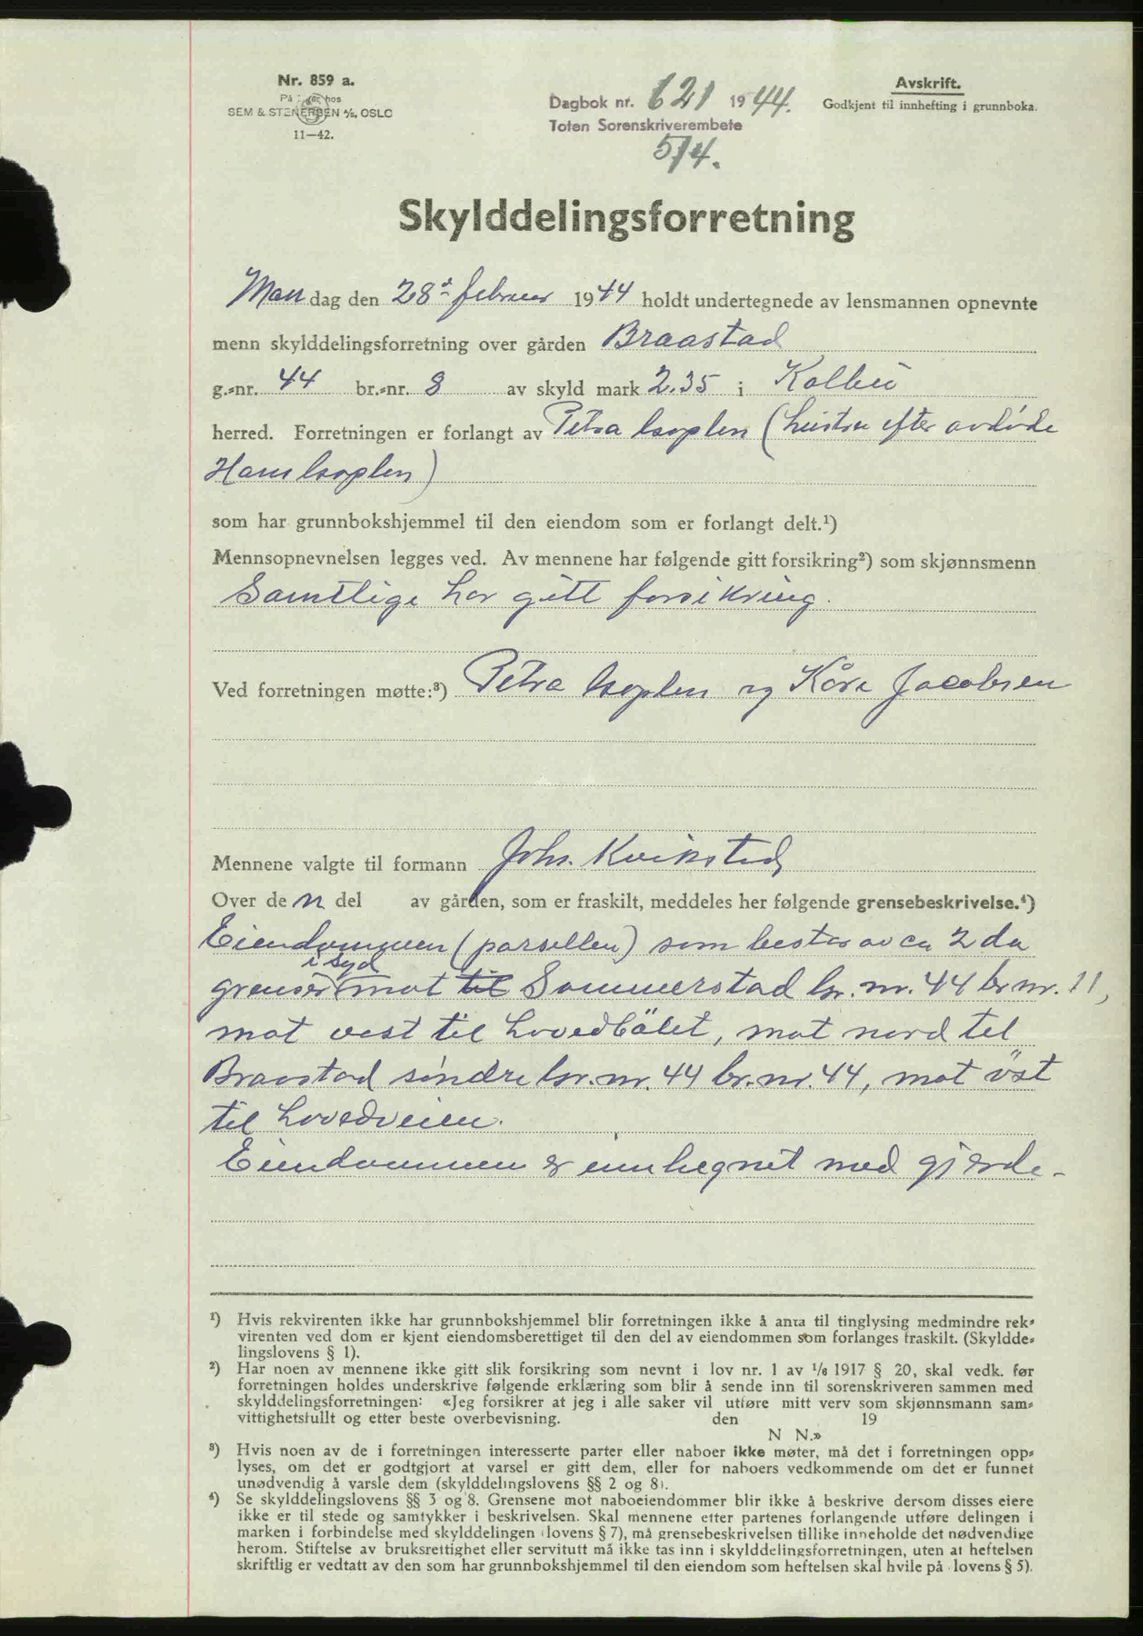 Nr. 859 a.
På lager hos
SEM & STENERSEN A/S, OSLO
11—42.
Dagbok nr. 621 1944.
Toten Sorenskriverembete
5/4.
Avskrift.
Godkjent til innhefting i grunnboka.
Skylddelingsforretning
Mandag den 28de februar 1944 holdt undertegnede av lensmannen opnevnte
menn skylddelingsforretning over gården Braastad
g.-nr. 44 br.-nr. 8 av skyld mark 2.35 i Kolbu
herred. Forretningen er forlangt av Petra (hustru efter avdøde
Hans
som har grunnbokshjemmel til den eiendom som er forlangt delt.¹)
Mennsopnevnelsen legges ved. Av mennene har følgende gitt forsikring²) som skjønnsmenn
Samtlige har gitt forsikring.
Ved forretningen møtte:³) Petra og Kåre Jacobsen
Mennene valgte til formann Joh. Kvikstad
Over den del av gården, som er fraskilt, meddeles her følgende grensebeskrivelse.⁴)
Eiendommen (parsellen) som består av ca 2 da
i syd
grenser mot til Sommerstad gr. nr. 44 br nr. 11,
mot vest til hovedbölet, mot nord tel
Braastad söndre gr. nr. 44 br. nr 44, mot öst
til hovedveien.
Eiendommen er innhegnet med gjerde.
¹) Hvis rekvirenten ikke har grunnbokshjemmel blir forretningen ikke å anta til tinglysing medmindre rek-
virenten ved dom er kjent eiendomsberettiget til den del av eiendommen som forlanges fraskilt. (Skyldde-
lingslovens § 1).
²) Har noen av mennene ikke gitt slik forsikring som nevnt i lov nr. 1 av 1/6 1917 § 20, skal vedk. før
forretningen holdes underskrive følgende erklæring som blir å sende inn til sorenskriveren sammen med
skylddelingsforretningen: «Jeg forsikrer at jeg i alle saker vil utføre mitt verv som skjønnsmann sam-
vittighetsfullt og etter beste overbevisning. den 19
N N.»
³) Hvis noen av de i forretningen interesserte parter eller naboer ikke møter, må det i forretningen opp-
lyses, om det er godtgjort at varsel er gitt dem, eller for naboers vedkommende om det er funnet
unødvendig å varsle dem (skylddelingslovens §§ 2 og 8).
⁴) Se skylddelingslovens §§ 3 og 8. Grensene mot naboeiendommer blir ikke å beskrive dersom disses eiere
ikke er til stede og samtykker i beskrivelsen. Skal mennene etter partenes forlangende utføre delingen i
marken i forbindelse med skylddelingen (lovens § 7), må grensebeskrivelsen tillike inneholde det nødvendige
herom. Stiftelse av bruksrettighet eller servitutt må ikke tas inn i skylddelingsforretningen, uten at heftelsen
skriftlig er vedtatt av den som har grunnbokshjemmel til den eiendom som heftelsen skal hvile på (lovens § 5).